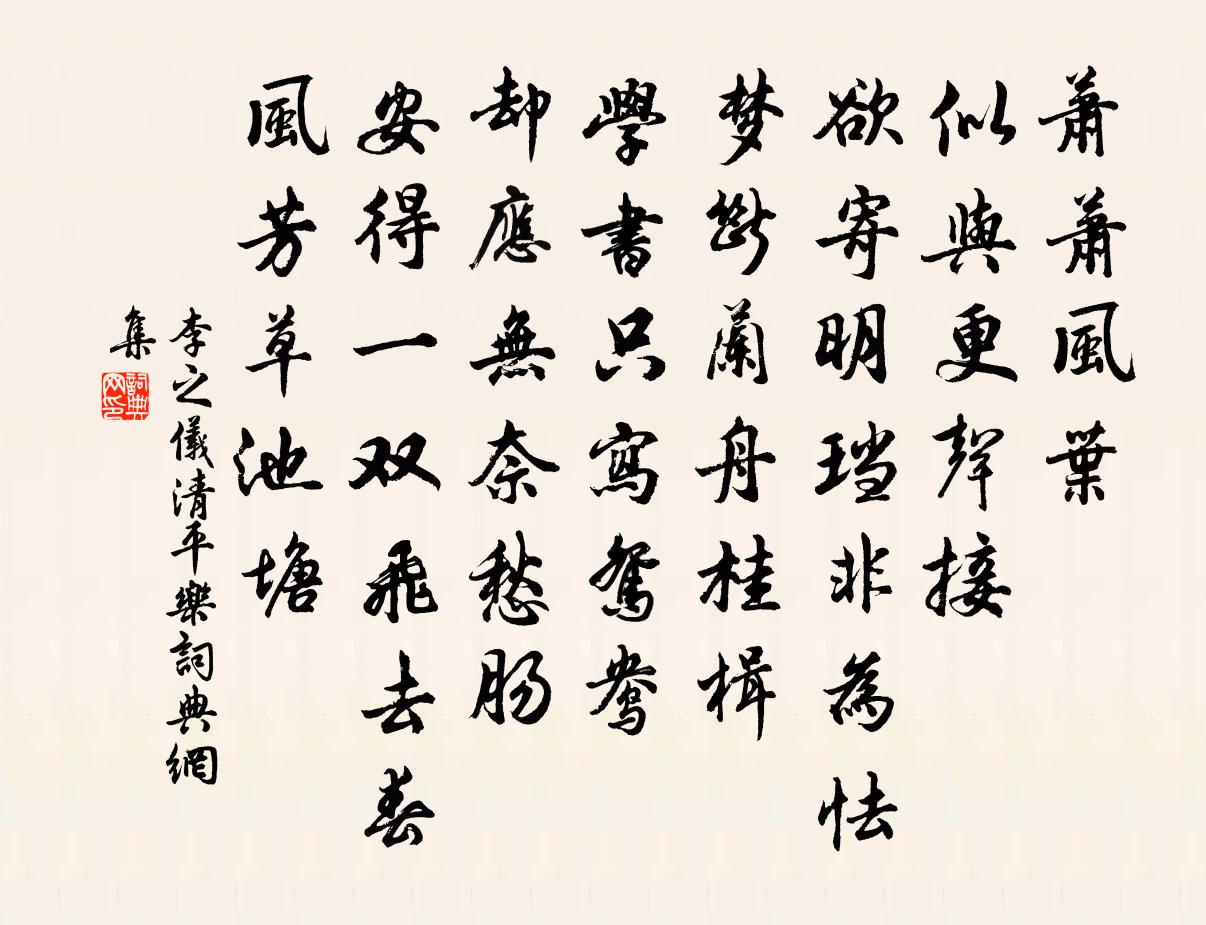 蕭蕭風葉
似與更聲接
欲寄明璫非為怯
梦斷蘭舟桂楫
學書只寫鴛鴦
却應無奈愁肠
安得一双飛去春
風芳草池塘
李之儀清平樂詞典網
集
詞典网印